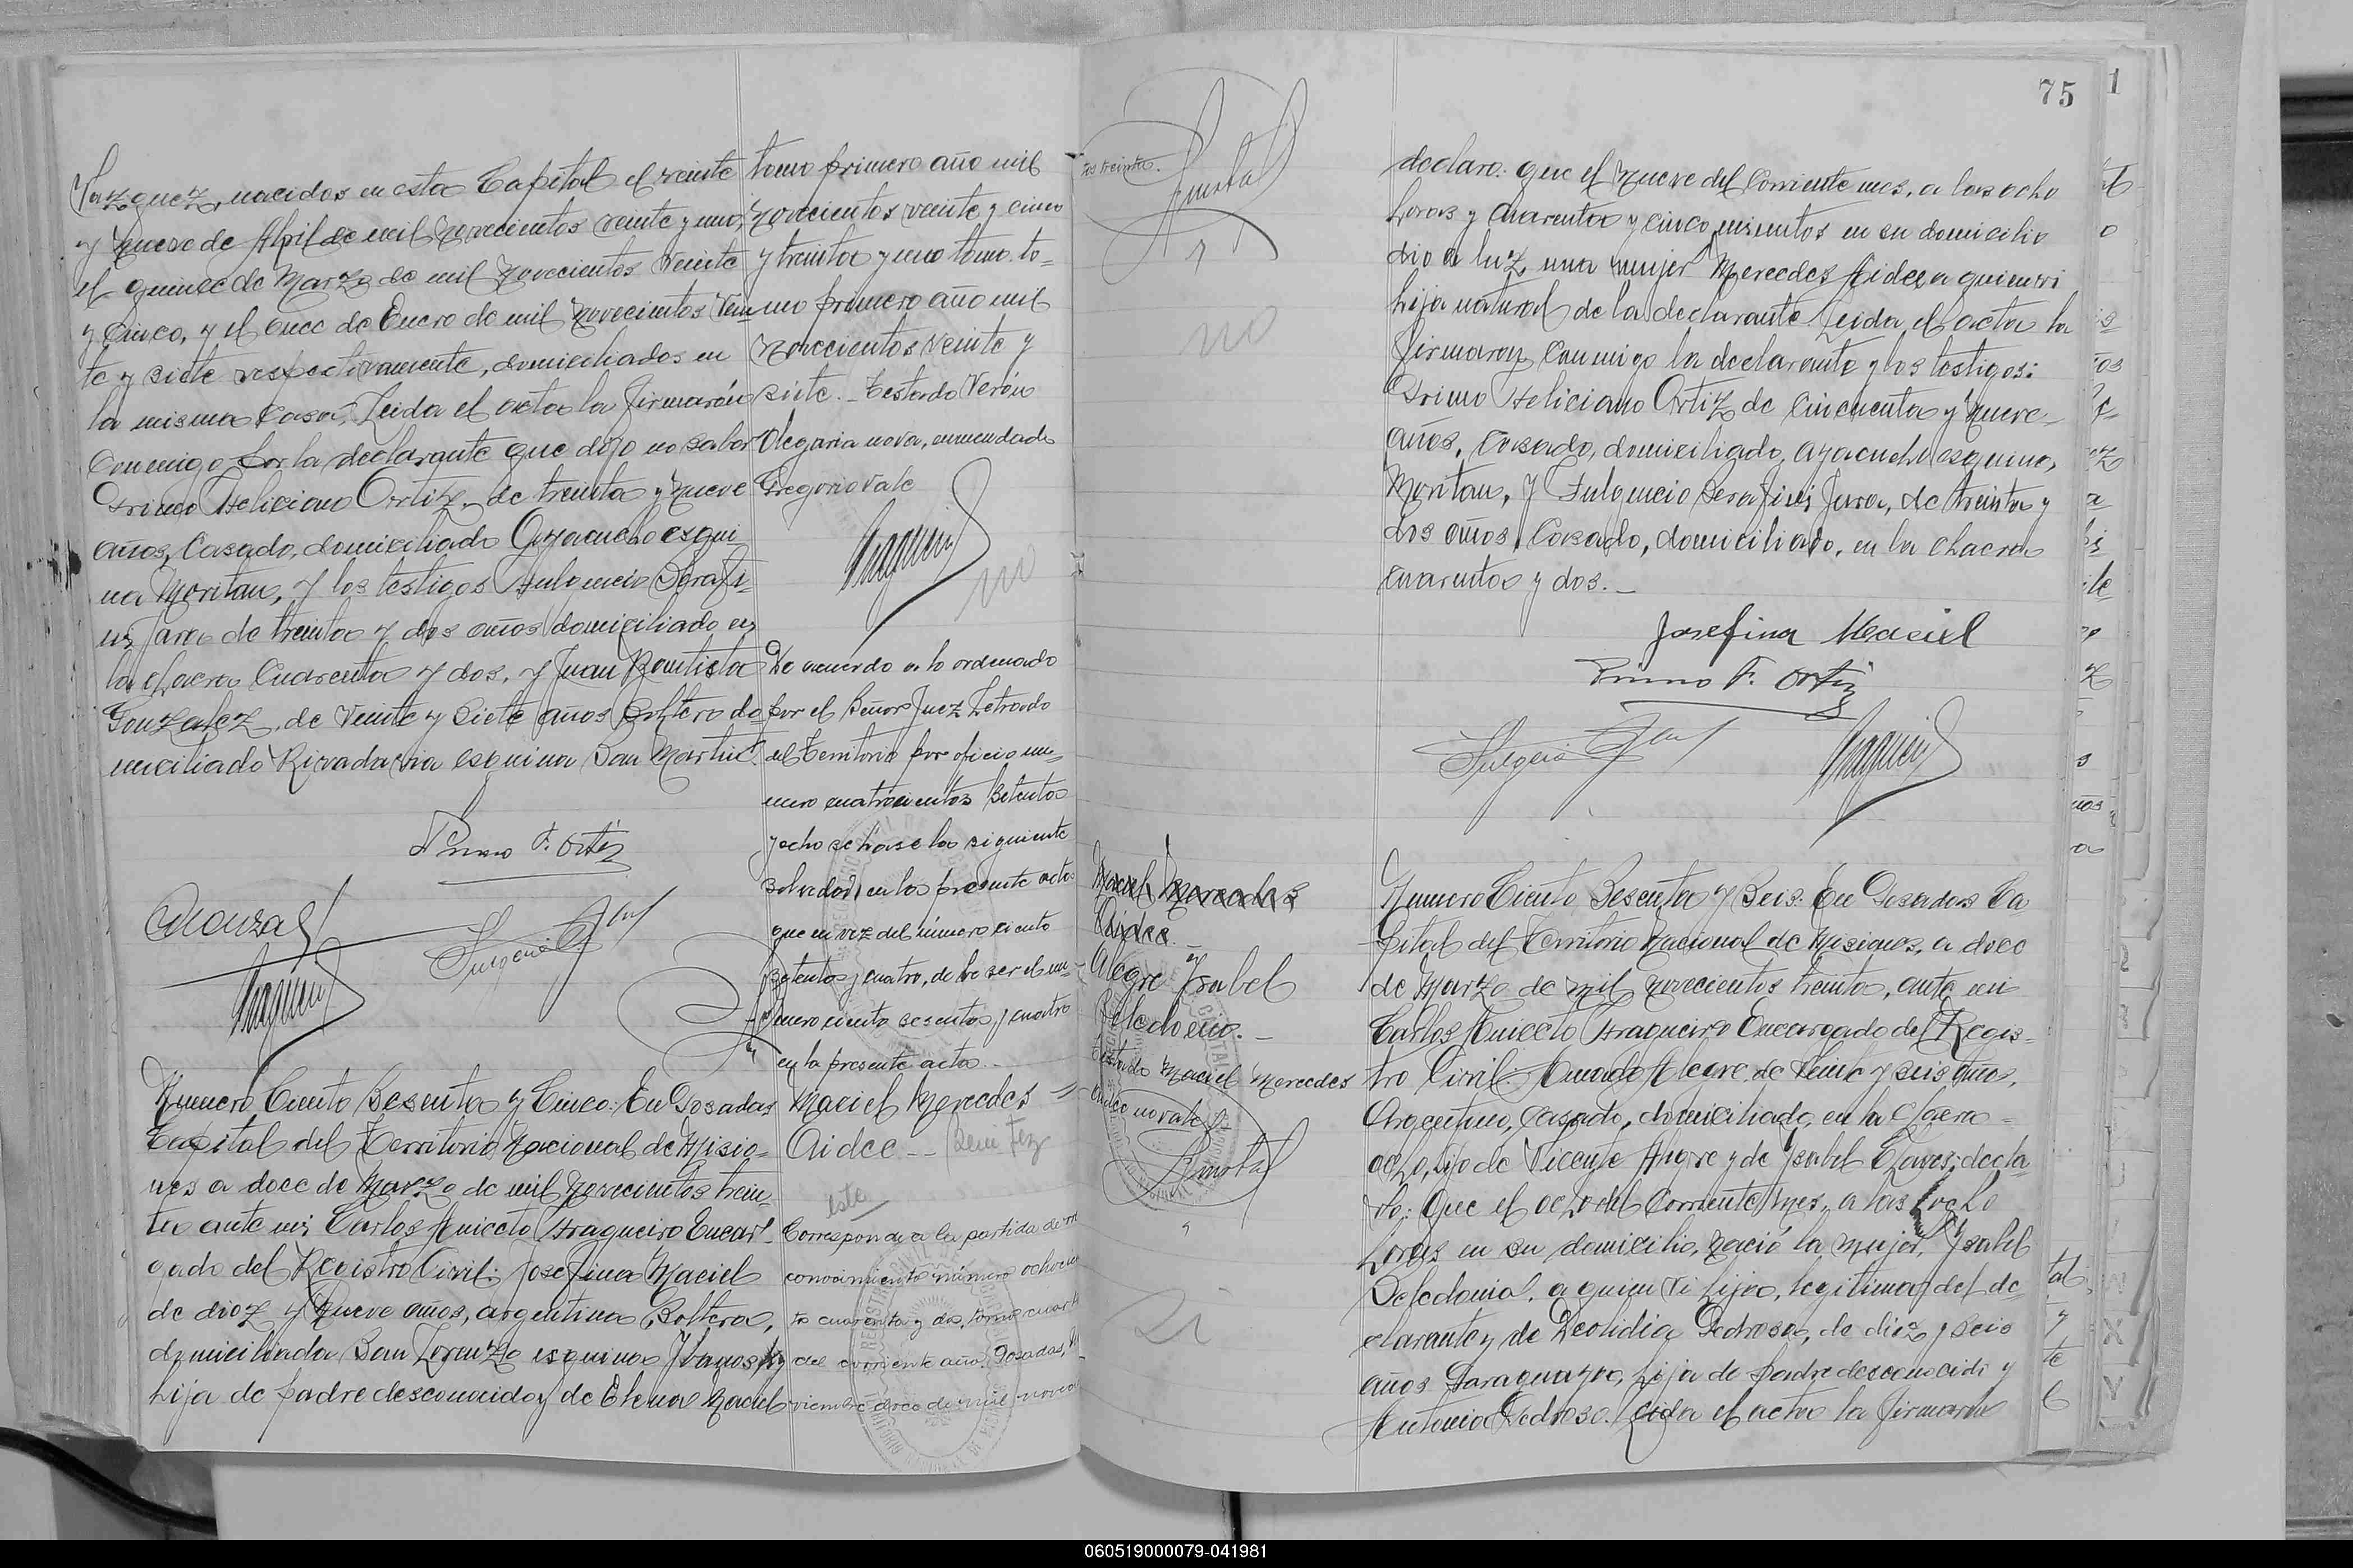 Vazquez, nacidos en esta Capital el veinte
y nueve de Abril de mil novecientos veinte y uno,
el quince de Marzo de mil novecientos veinte
y Cinco, y el once de Enero de mil novecientos vein
te y siete respectivamente, domiciliados en
la misma Casa. Leida el acta la firmarón
Conmigo por la declarante que dijo no saber
Primo Feliciano Ortiz, de treinta y nueve
años, Casado, domiciliado Ayacucho esqui
na Moritan, y los testigos Fulgencio Serafi=
ni Jara de treinta y dos años domiciliado en
la chacra Cuarenta y dos, y Juan Bautista
Gonzalez, de Veinte y Siete años Soltero do
miciliado Rivadavia esquina San Martin.
Primo F. Ortiz
Numero Ciento Sesenta y Cinco: En Posadas
Capital del Territorio Nacional de Misio=
nes a doce de Marzo de mil novecientos trein
ta ante mi, Carlos Aniceto Fragueiro Encar
gado del Registro Civil: Josefina Maciel
de diez y nueve años, argentina, Soltera,
domiciliada San Lorenzo esquina
hija de padre desconocido y de Elena Maciel
tomo primero año mil
novecientos veinte y cinco
y treinta y uno tomo to=
mo primero año mil
novecientos veinte y
siete. _ Testado Verón
Olegaria no va, enmendado
Gregorio Vale
no
De acuerdo a lo ordenado
por el Señor Juez Letrado
del Territorio por oficio nu=
mero cuatrocientos Setenta
y ocho se hase la siguiente
Salvedad en la presente acta
que en vez del número ciento
setenta y cuatro, debe ser el nu=
mero ciento sesenta y cuatro
en la presente acta _
Maciel Mercedes =
Aidee _
este
Corresponde a la partida de re
conocimiento número ochocien
to cuarenta y dos, tomo cuarto
del corriente año. Posadas,
viembre doce de mil novecien
tos treinta.
no
Maciel Mercedes
Aidee _
Alegre Ysabel
Celedonia. _
testado Maciel Mercedes
Aidee no vale
Si
75
declaro: que el nueve del Corriente mes, a las ocho
horas y Cuarenta y cinco minutos en su domicilio
dio a luz una mujer Mercedes Aidee a quien vi
hija natural de la declarante. Leida el acta la
firmaron Conmigo la declarante y los testigos:
Primo Feliciano Ortiz de Cincuenta y nueve
años, Casado, domiciliado Ayacucho esquina,
Moritan, y Fulgencio Serafini Jara, de treinta y
dos años, Casado, domiciliado, en la chacra
Cuarenta y dos. _
Josefina Maciel
Primo F. Ortiz
Numero Ciento Sesenta y Seis: En Posadas Ca
pital del Territorio Nacional de Misiones, a doce
de Marzo de mil novecientos treinta, ante mi
Carlos Aniceto Fragueiro Encargado del Regis=
tro Civil: Amado Alegre de Veinte y seis años,
Argentino, Casado, domiciliado, en la Chacra
ocho, hijo de Vicente Alegre y de Ysabel Chaves; decla
ro: Que el ocho del Corriente mes, a las ocho
horas en su domicilio, nació la mujer, Ysabel
Celedonia, a quien vi hija, legitima del de
clarante y de Leolidia Pedroso, de diez y seis
años Paraguaya, hija de padre desconocido y
Antonia Pedroso. Leida el acta la firmaron
060519000079-041981